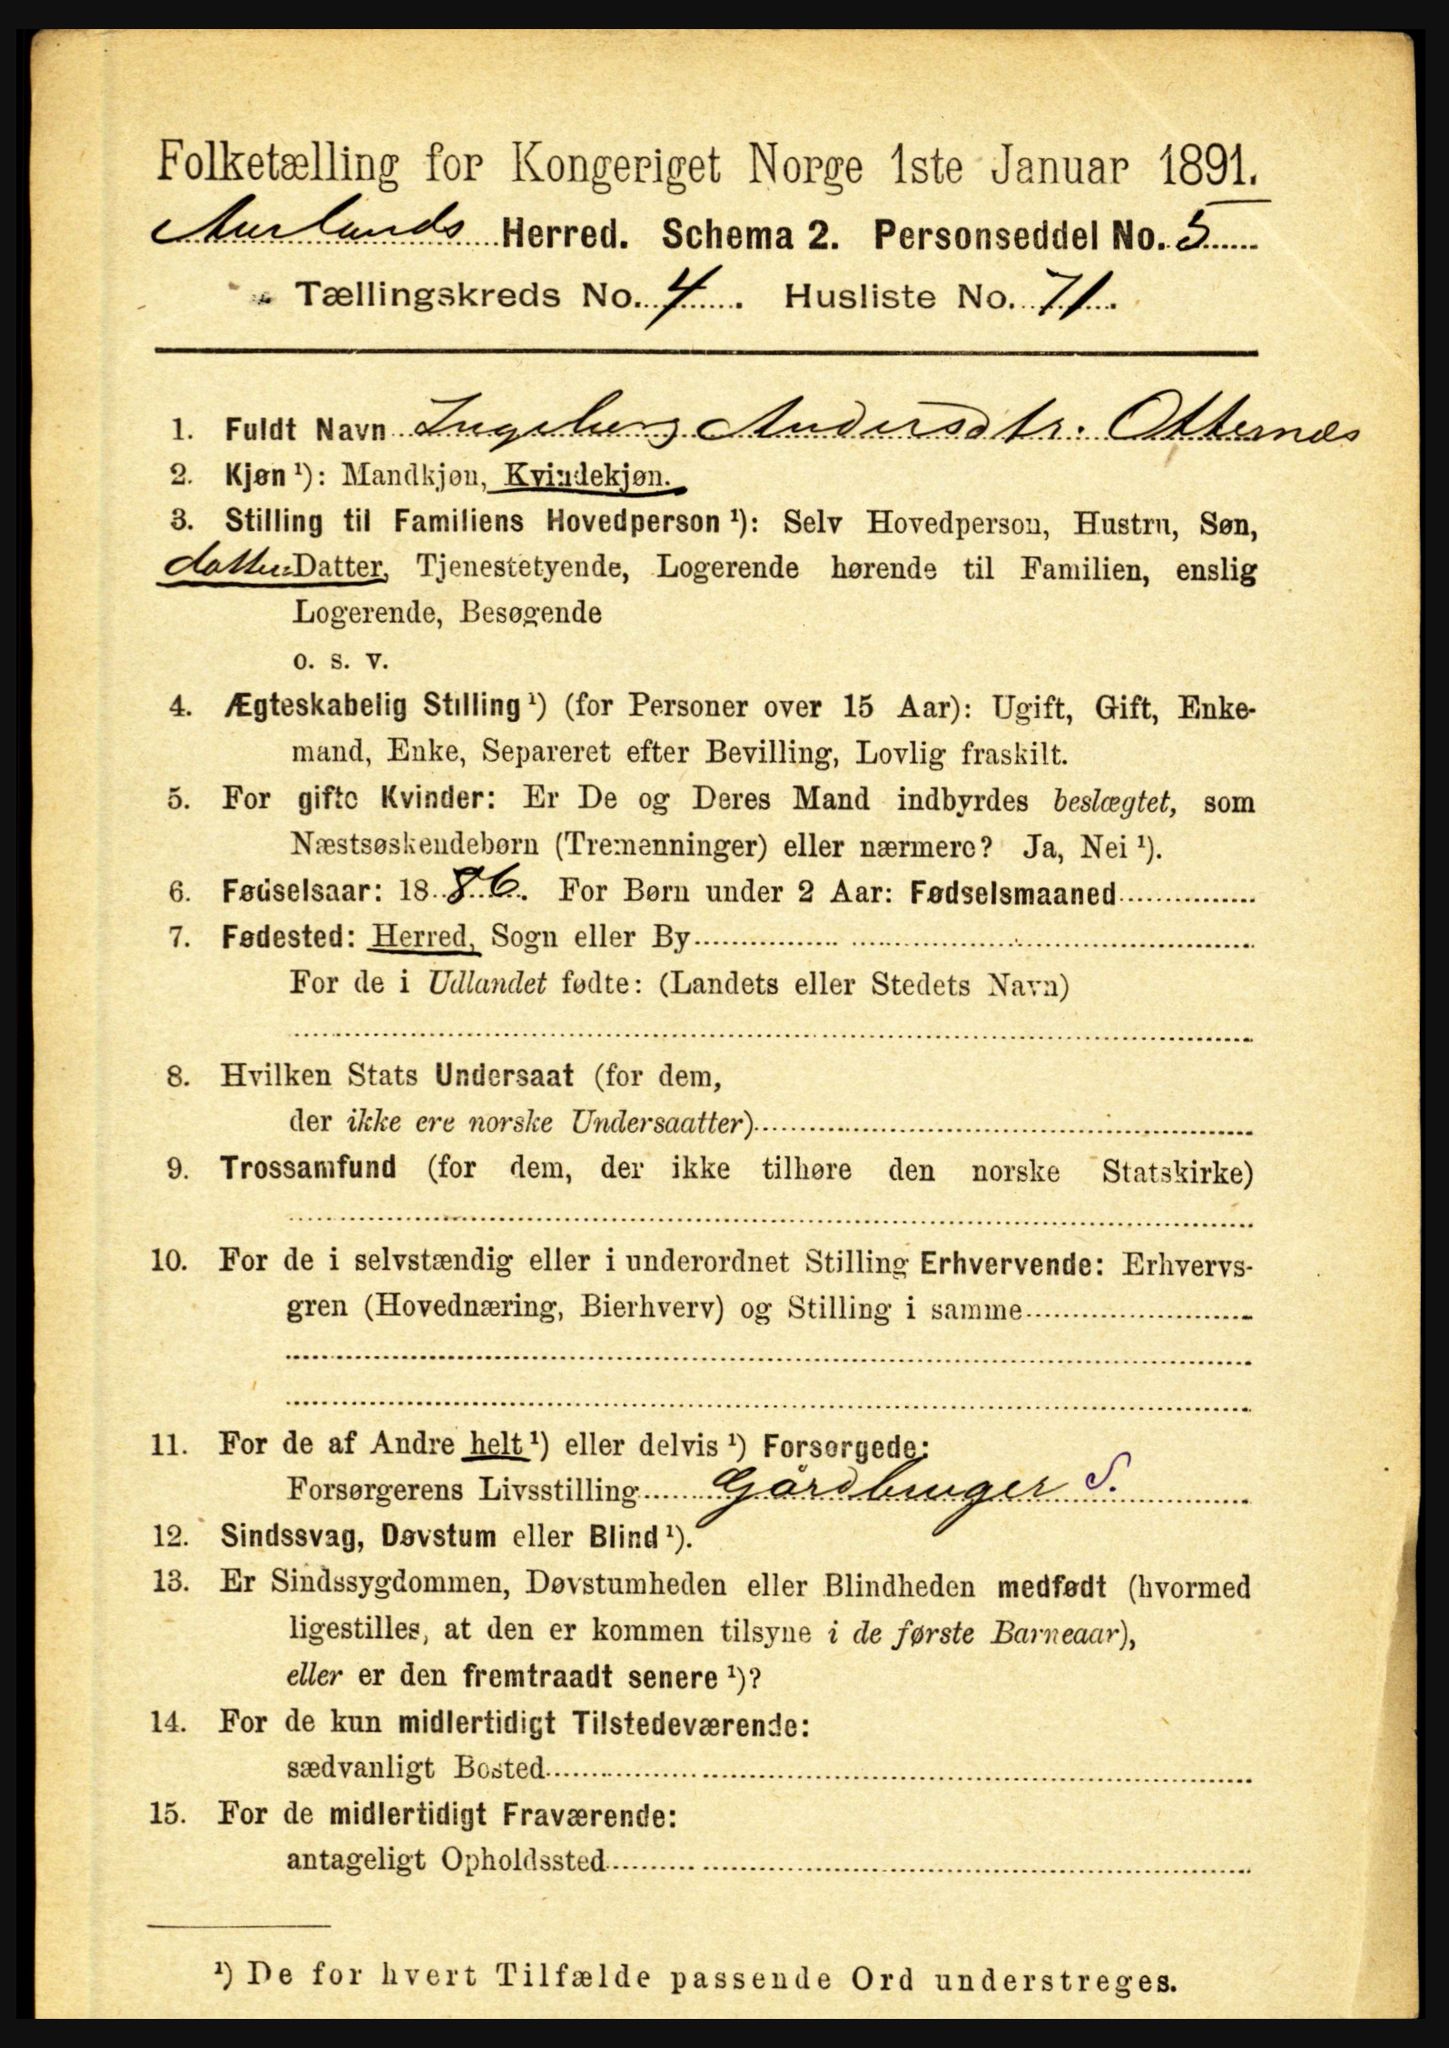 Folketælling for Kongeriget Norge 1ste Januar 1891.
Aurlands Herred. Schema 2. Personseddel No. 5
Tællingskreds No. 4. Husliste No. 71.
1. Fuldt Navn Ingeborg Andersdtr. Otternæs
2. Kjøn ¹): Mandkjøn, Kvindekjøn.
3. Stilling til Familiens Hovedperson ¹): Selv Hovedperson, Hustru, Søn,
datter Datter, Tjenestetyende, Logerende hørende til Familien, enslig
Logerende, Besøgende
o. s. v.
4. Ægteskabelig Stilling ¹) (for Personer over 15 Aar): Ugift, Gift, Enke-
mand, Enke, Separeret efter Bevilling, Lovlig fraskilt.
5. For gifte Kvinder: Er De og Deres Mand indbyrdes beslægtet, som
Næstsøskendebørn (Tremenninger) eller nærmere? Ja, Nei ¹).
6. Fødselsaar: 1886. For Børn under 2 Aar: Fødselsmaaned
7. Fødested: Herred, Sogn eller By
For de i Udlandet fødte: (Landets eller Stedets Navn)
8. Hvilken Stats Undersaat (for dem,
der ikke ere norske Undersaatter)
9. Trossamfund (for dem, der ikke tilhøre den norske Statskirke)
10. For de i selvstændig eller i underordnet Stilling Erhvervende: Erhvervs-
gren (Hovednæring, Bierhverv) og Stilling i samme
11. For de af Andre helt ¹) eller delvis ¹) Forsørgede:
Forsørgerens Livsstilling Gårdbruger S.
12. Sindssvag, Døvstum eller Blind ¹).
13. Er Sindssygdommen, Døvstumheden eller Blindheden medfødt (hvormed
ligestilles, at den er kommen tilsyne i de første Barneaar),
eller er den fremtraadt senere ¹)?
14. For de kun midlertidigt Tilstedeværende:
sædvanligt Bosted
15. For de midlertidigt Fraværende:
antageligt Opholdssted
¹) De for hvert Tilfælde passende Ord understreges.